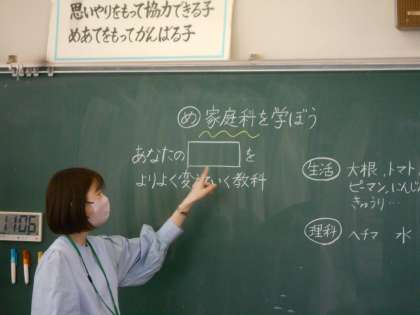 思いやりをもって協力できる子
めあてをもってがんばる子
め 家庭科を学ぼう
あなたの
を
よりよく変えていく教科
生活 大根,トマト,
ピーマン,にんじ
きゅうり…
理科 ヘチマ 水
1106